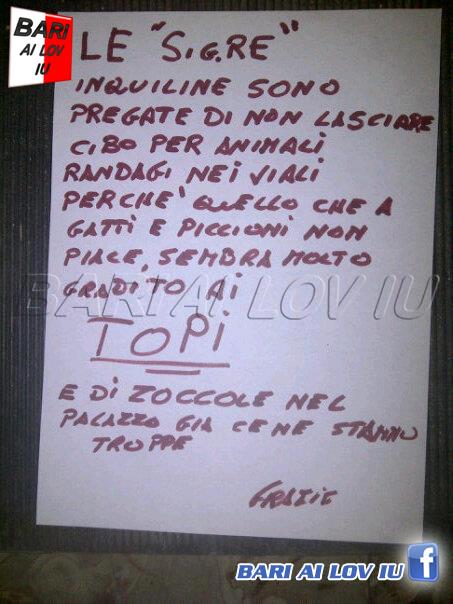 BARI
AI LOV
IU
LE "SIG.RE"
INQUILINE SONO
PREGATE DI NON LASCIARE
CIBO PER ANIMALI
RANDAGI NEI VIALI
PERCHE' QUELLO CHE A
GATTI E PICCIONI NON
PIACE, SEMBRA MOLTO
GRADITO AI
BARI AI LOV IU
TOPI
E DI ZOCCOLE NEL
PALAZZO GIA CE NE STANNO
TROPPE
GRAZIE
BARI AI LOV IU f